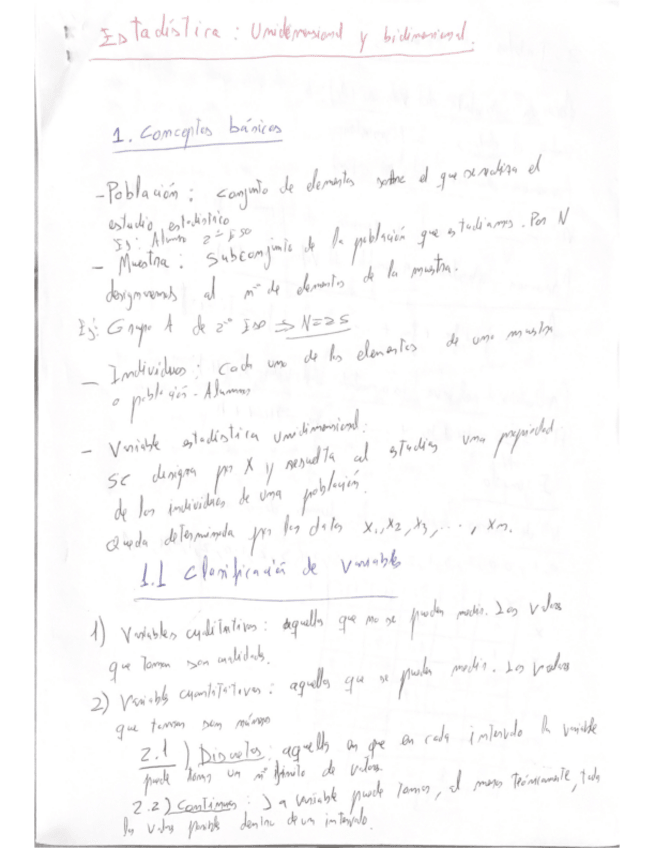 Estadística: Unidimensional y bidimensional.
1. Conceptos básicos
- Población: conjunto de elementos sobre el que se realiza el
estudio estadístico
Ej: Alumno 2º Eso
- Muestra: Subconjunto de la población que estudiamos. Por N
designaremos al nº de elementos de la muestra.
Ej: Grupo A de 2º Eso => N=25
- Individuos: Cada uno de los elementos de una muestra
o población. Alumnos
- Variable estadística unidimensional.
Se designa por X y resulta al estudiar una propiedad
de los individuos de una población.
Queda determinada por los datos x1, x2, x3, ..., xn.
1.1 Clasificación de variables
1) Variables cualitativas: aquellas que no se pueden medir. Los valores
que toman son cualidades.
2) Variables cuantitativas: aquellas que se pueden medir. Los valores
que toman son números
2.1) Discretas: aquellas en que en cada intervalo la variable
puede tomar un nº finito de valores.
2.2) Continuas: La variable puede tomar, al menos teóricamente, todos
los valores posibles dentro de un intervalo.